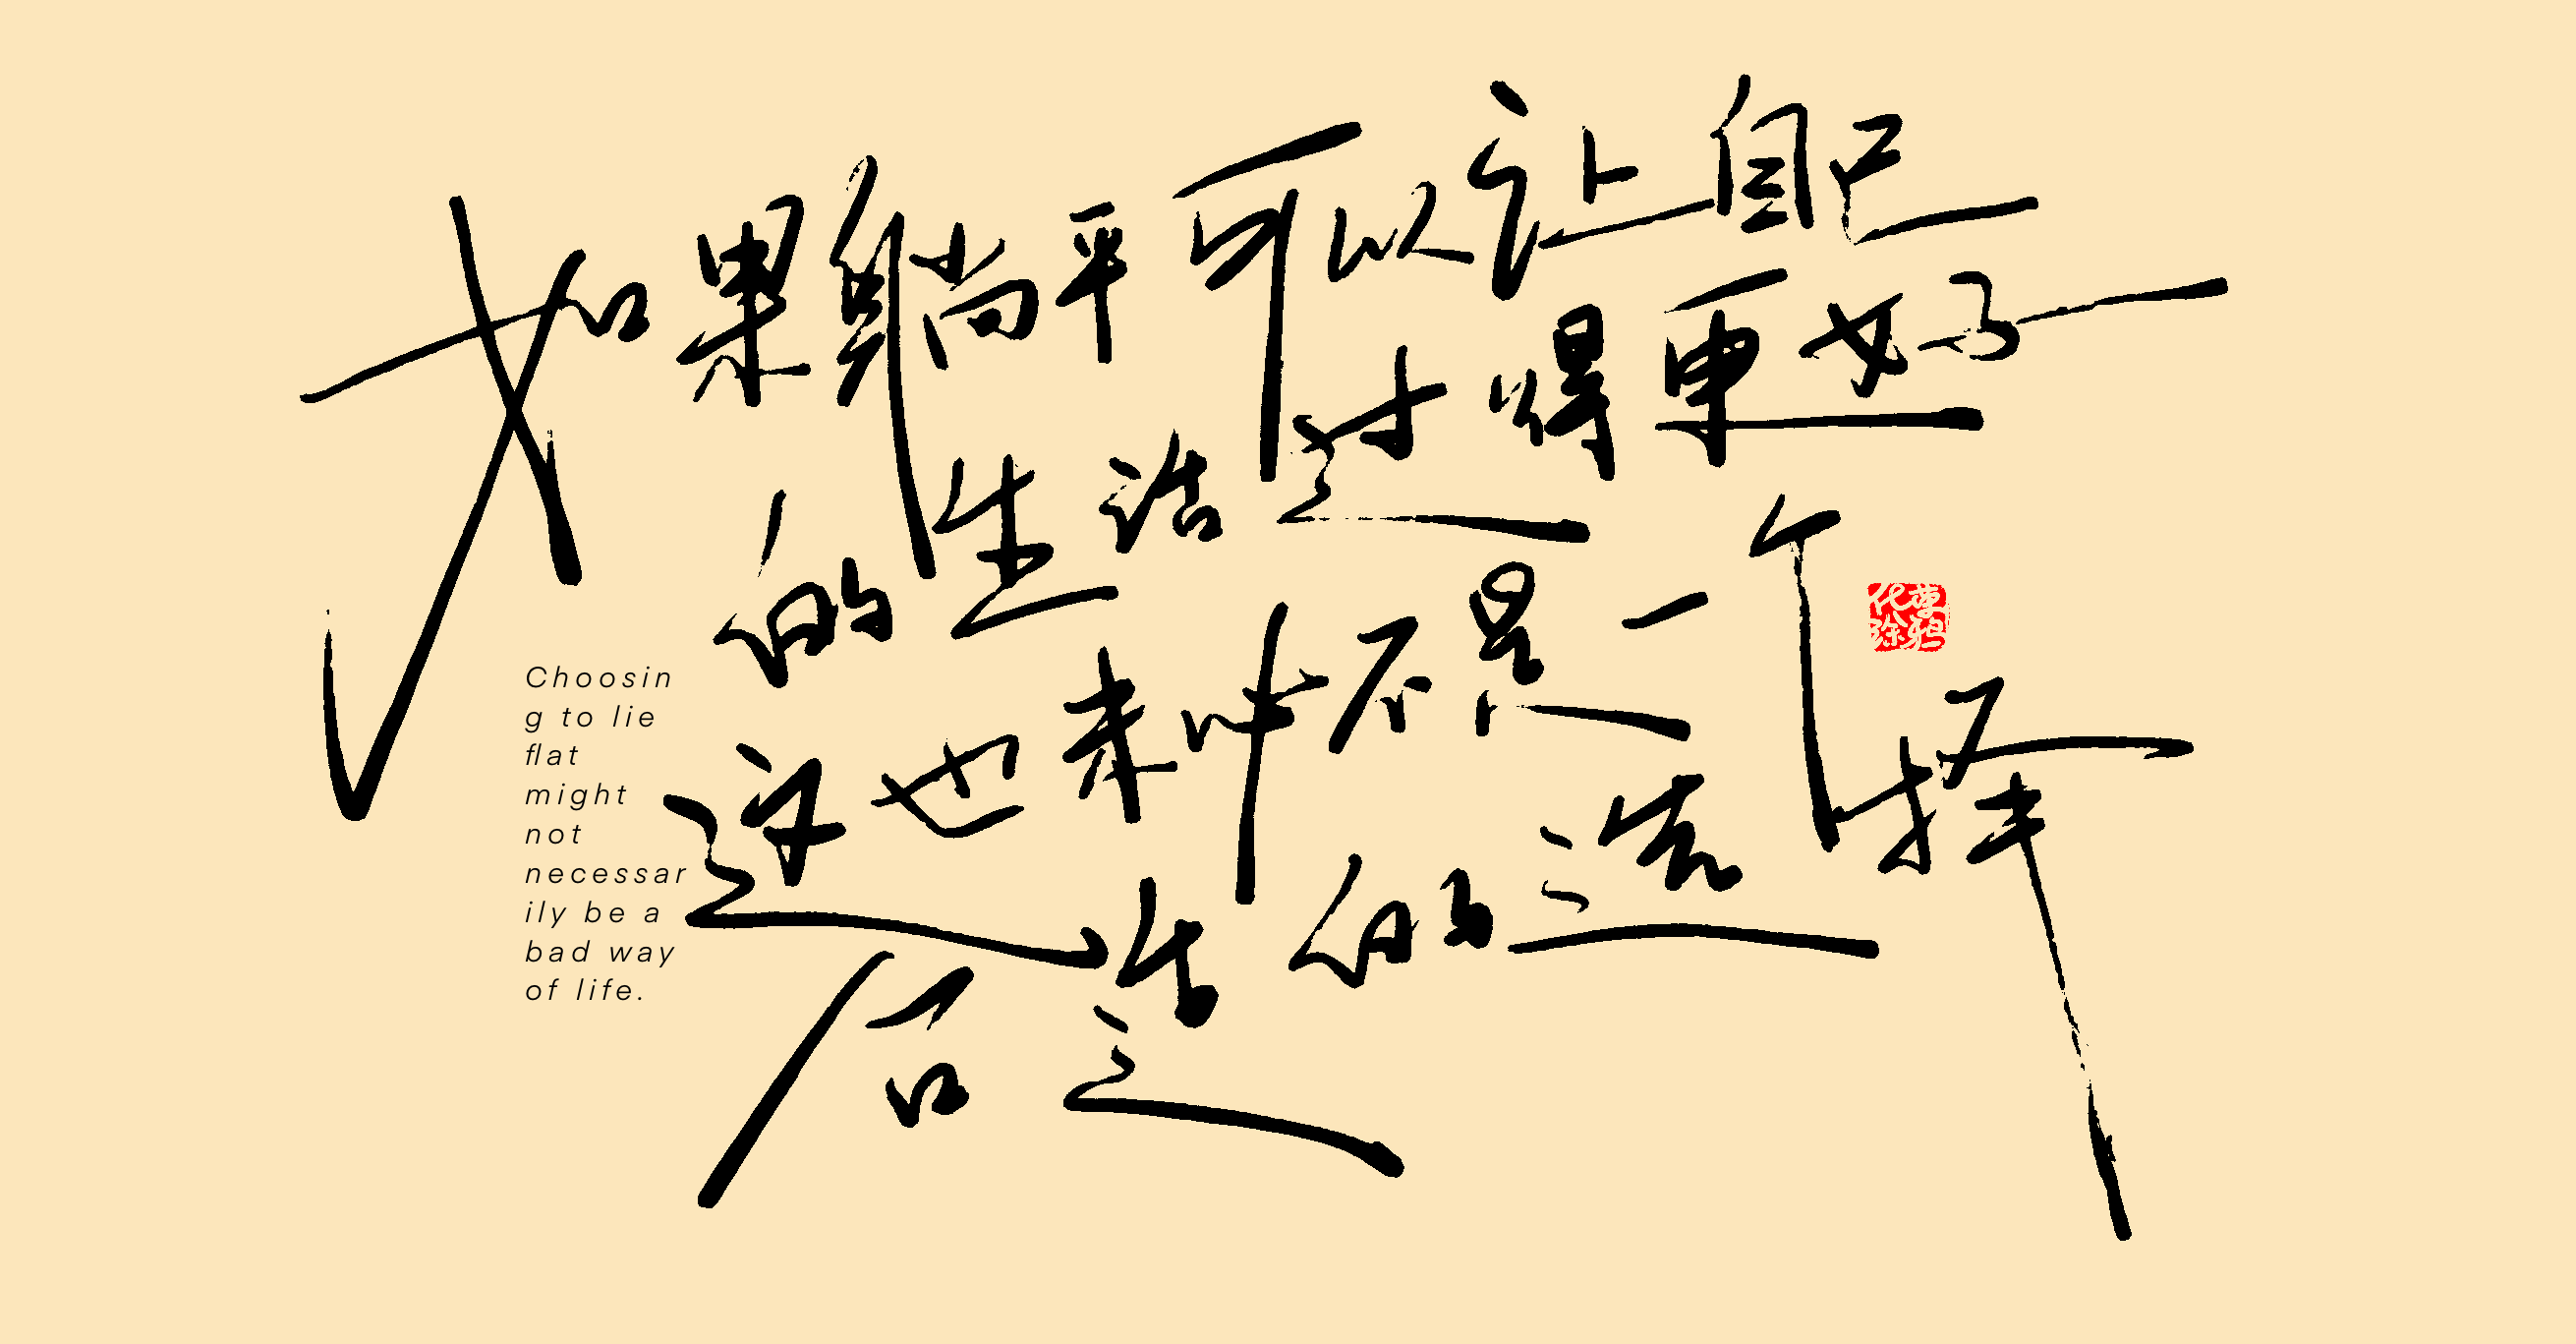 如果躺平可以让自己
的生活过得更好
这也未不是一个
合适的选择
Choosin
g to lie
flat
might
not
necessar
ily be a
bad way
of life.